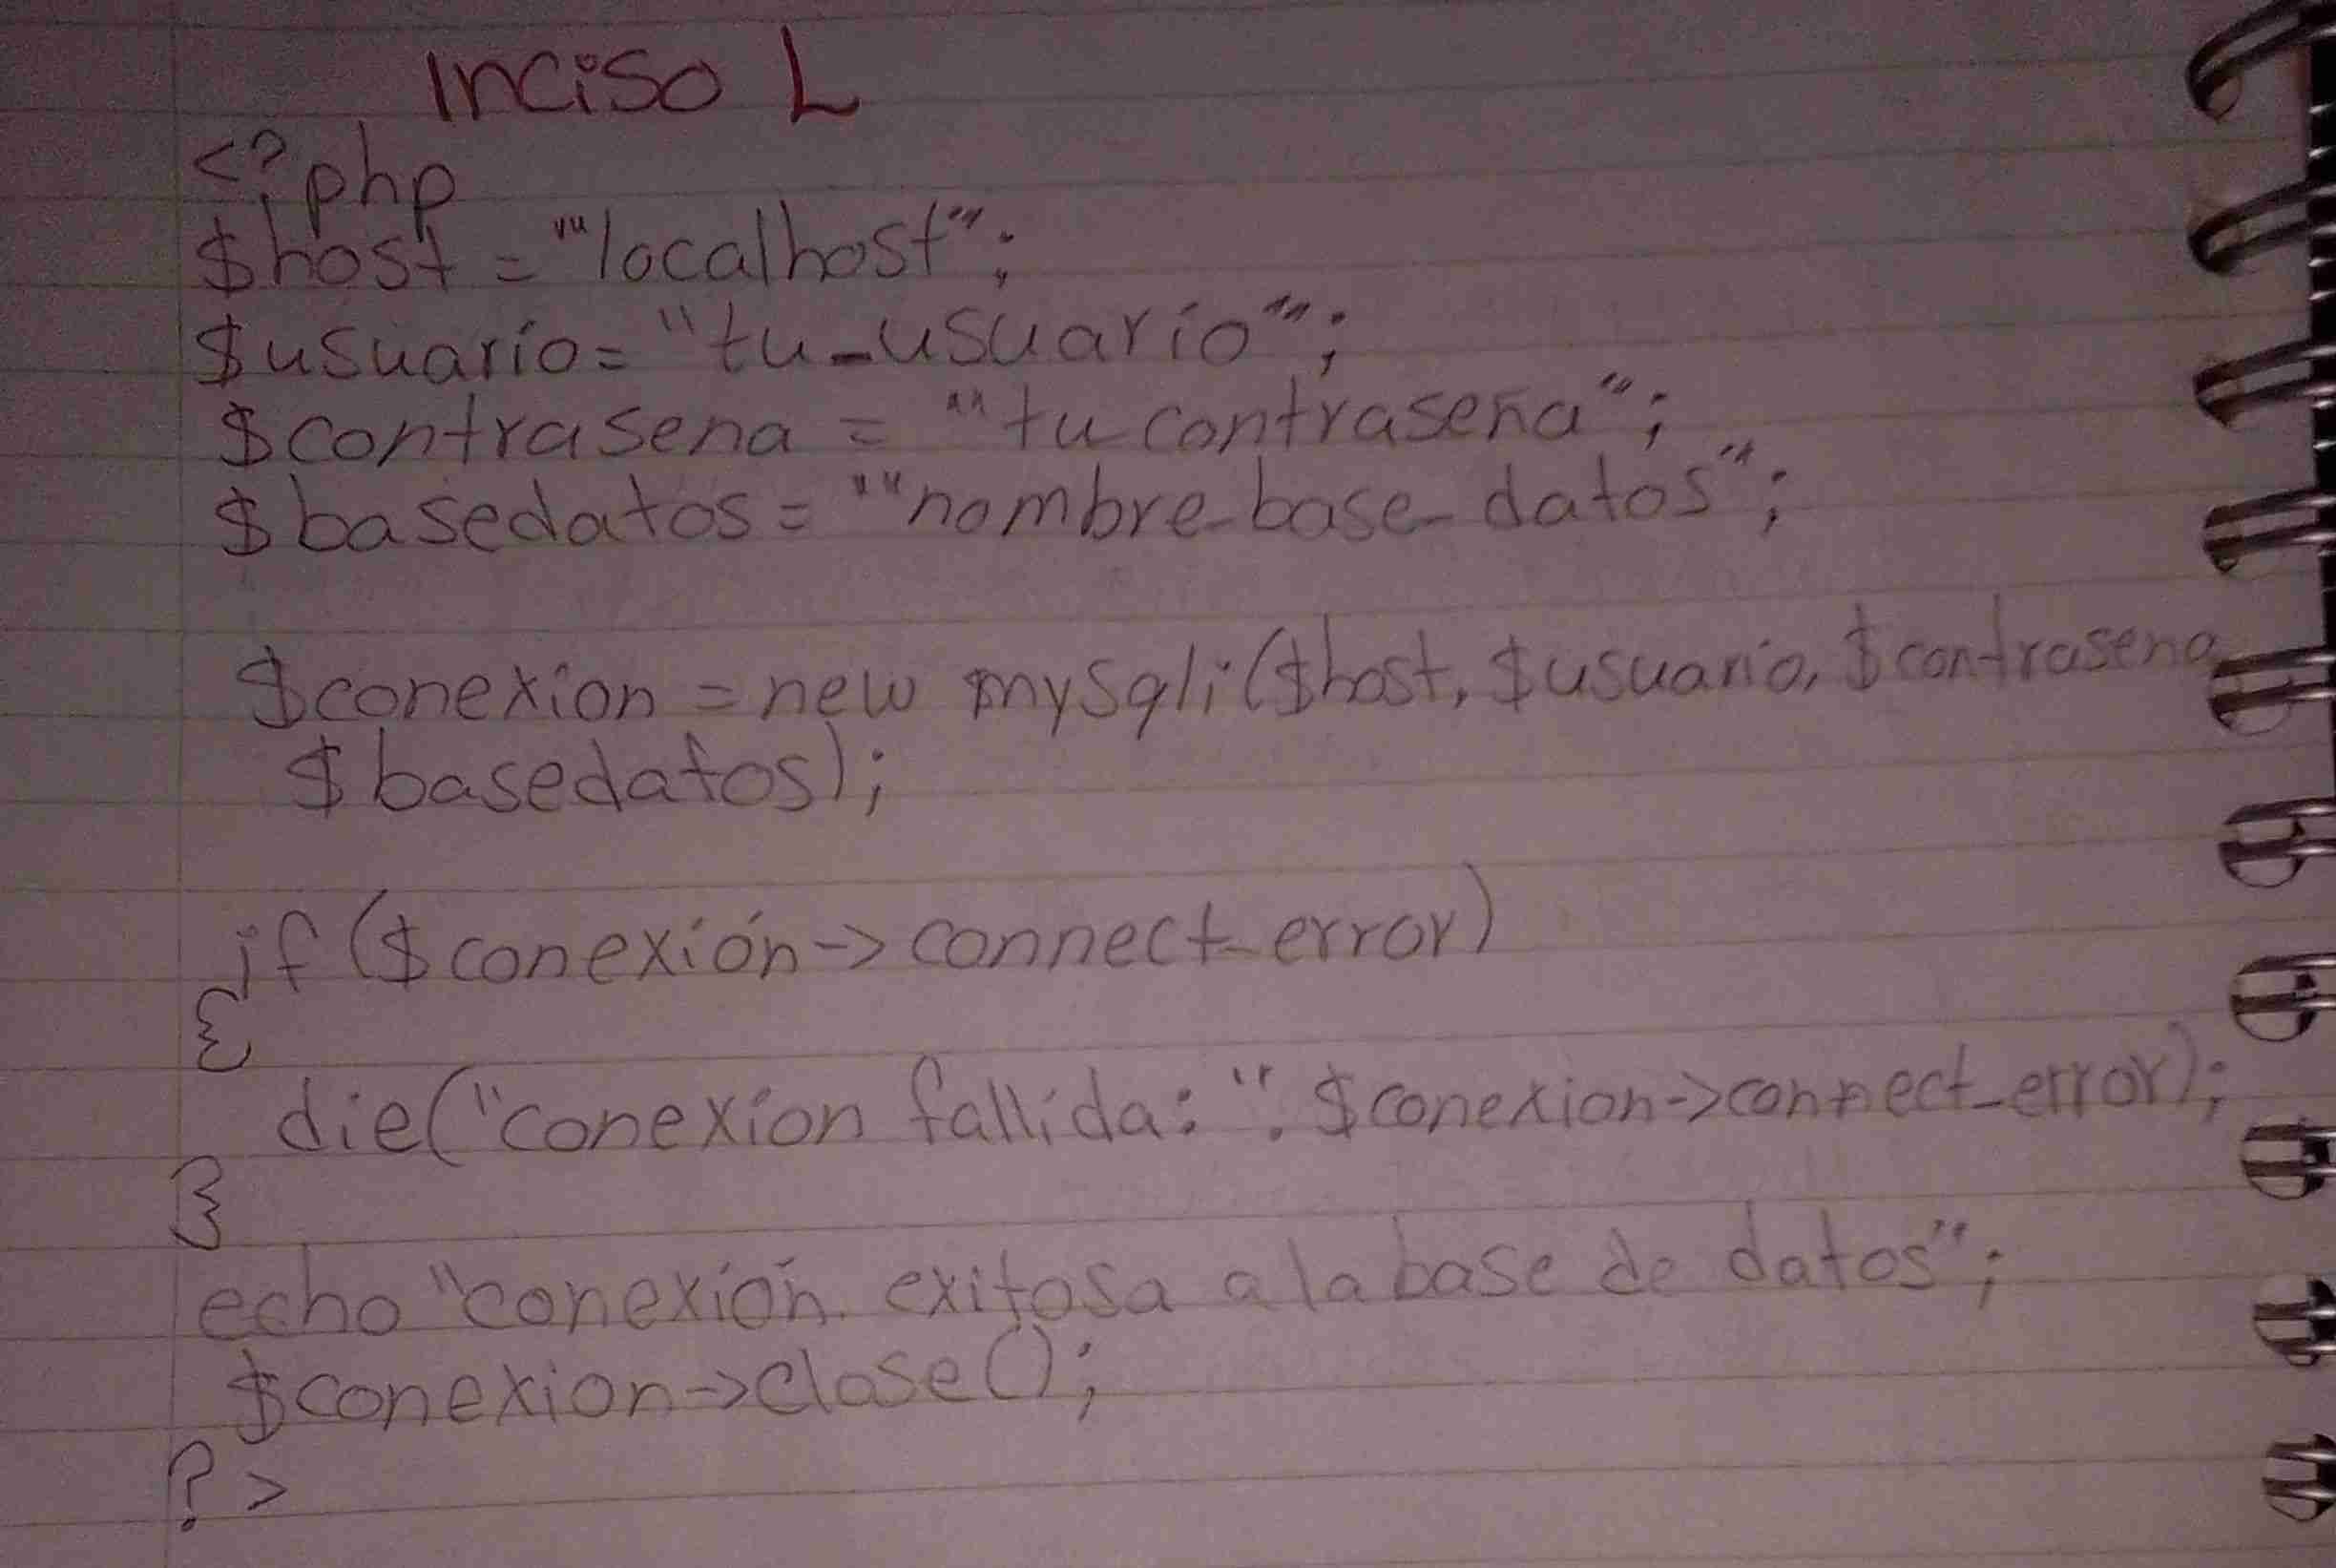 Inciso L
<?php
$host = ""localhost"";
$usuario= "tu_usuario"";
$contrasena = ""tu contraseña";
$basedatos= ""nombre_base_datos";
$conexion = new mysqli($host, $usuario, $contrasena
$basedatos);
if ($conexión->connect_error)
{
die("conexion fallida: ". $conexion->connect_error);
}
echo "conexión exitosa a la base de datos";
$conexion->close();
?>